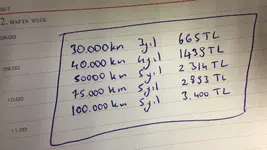 2. HAFTA WEEK
08:00
30.000 km 3 yıl 665 TL
40.000 km 4 yıl 1433 TL
09:00
50000 km 5 yıl 2314 TL
75.000 km 5 yıl 2853 TL
10:00
100.000 km 5 yıl 3.400 TL
11:00